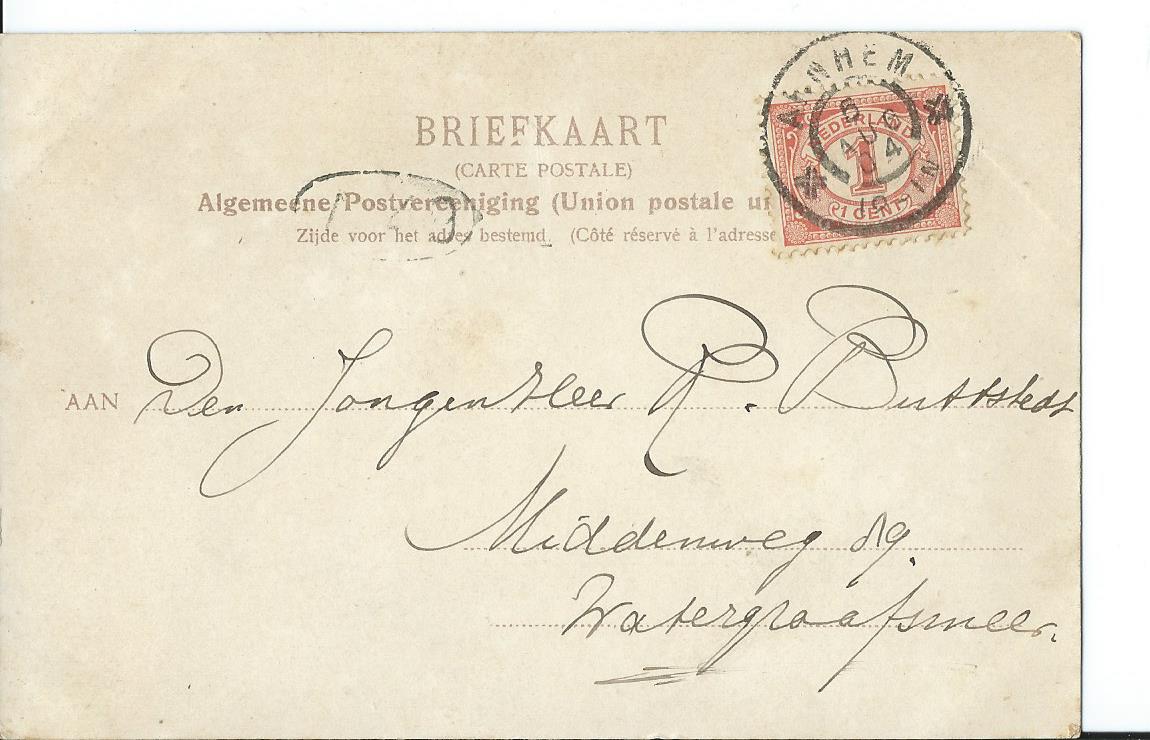 BRIEFKAART
(CARTE POSTALE)
Algemeene Postvereeniging (Union postale un
Zijde voor het adres bestemd. (Côté réservé à l'adresse
ARNHEM
NEDERLAND
1
1 CENT
AAN Den Jongenheer R. Buttstedt
Middenweg 89.
Watergraafsmeer.